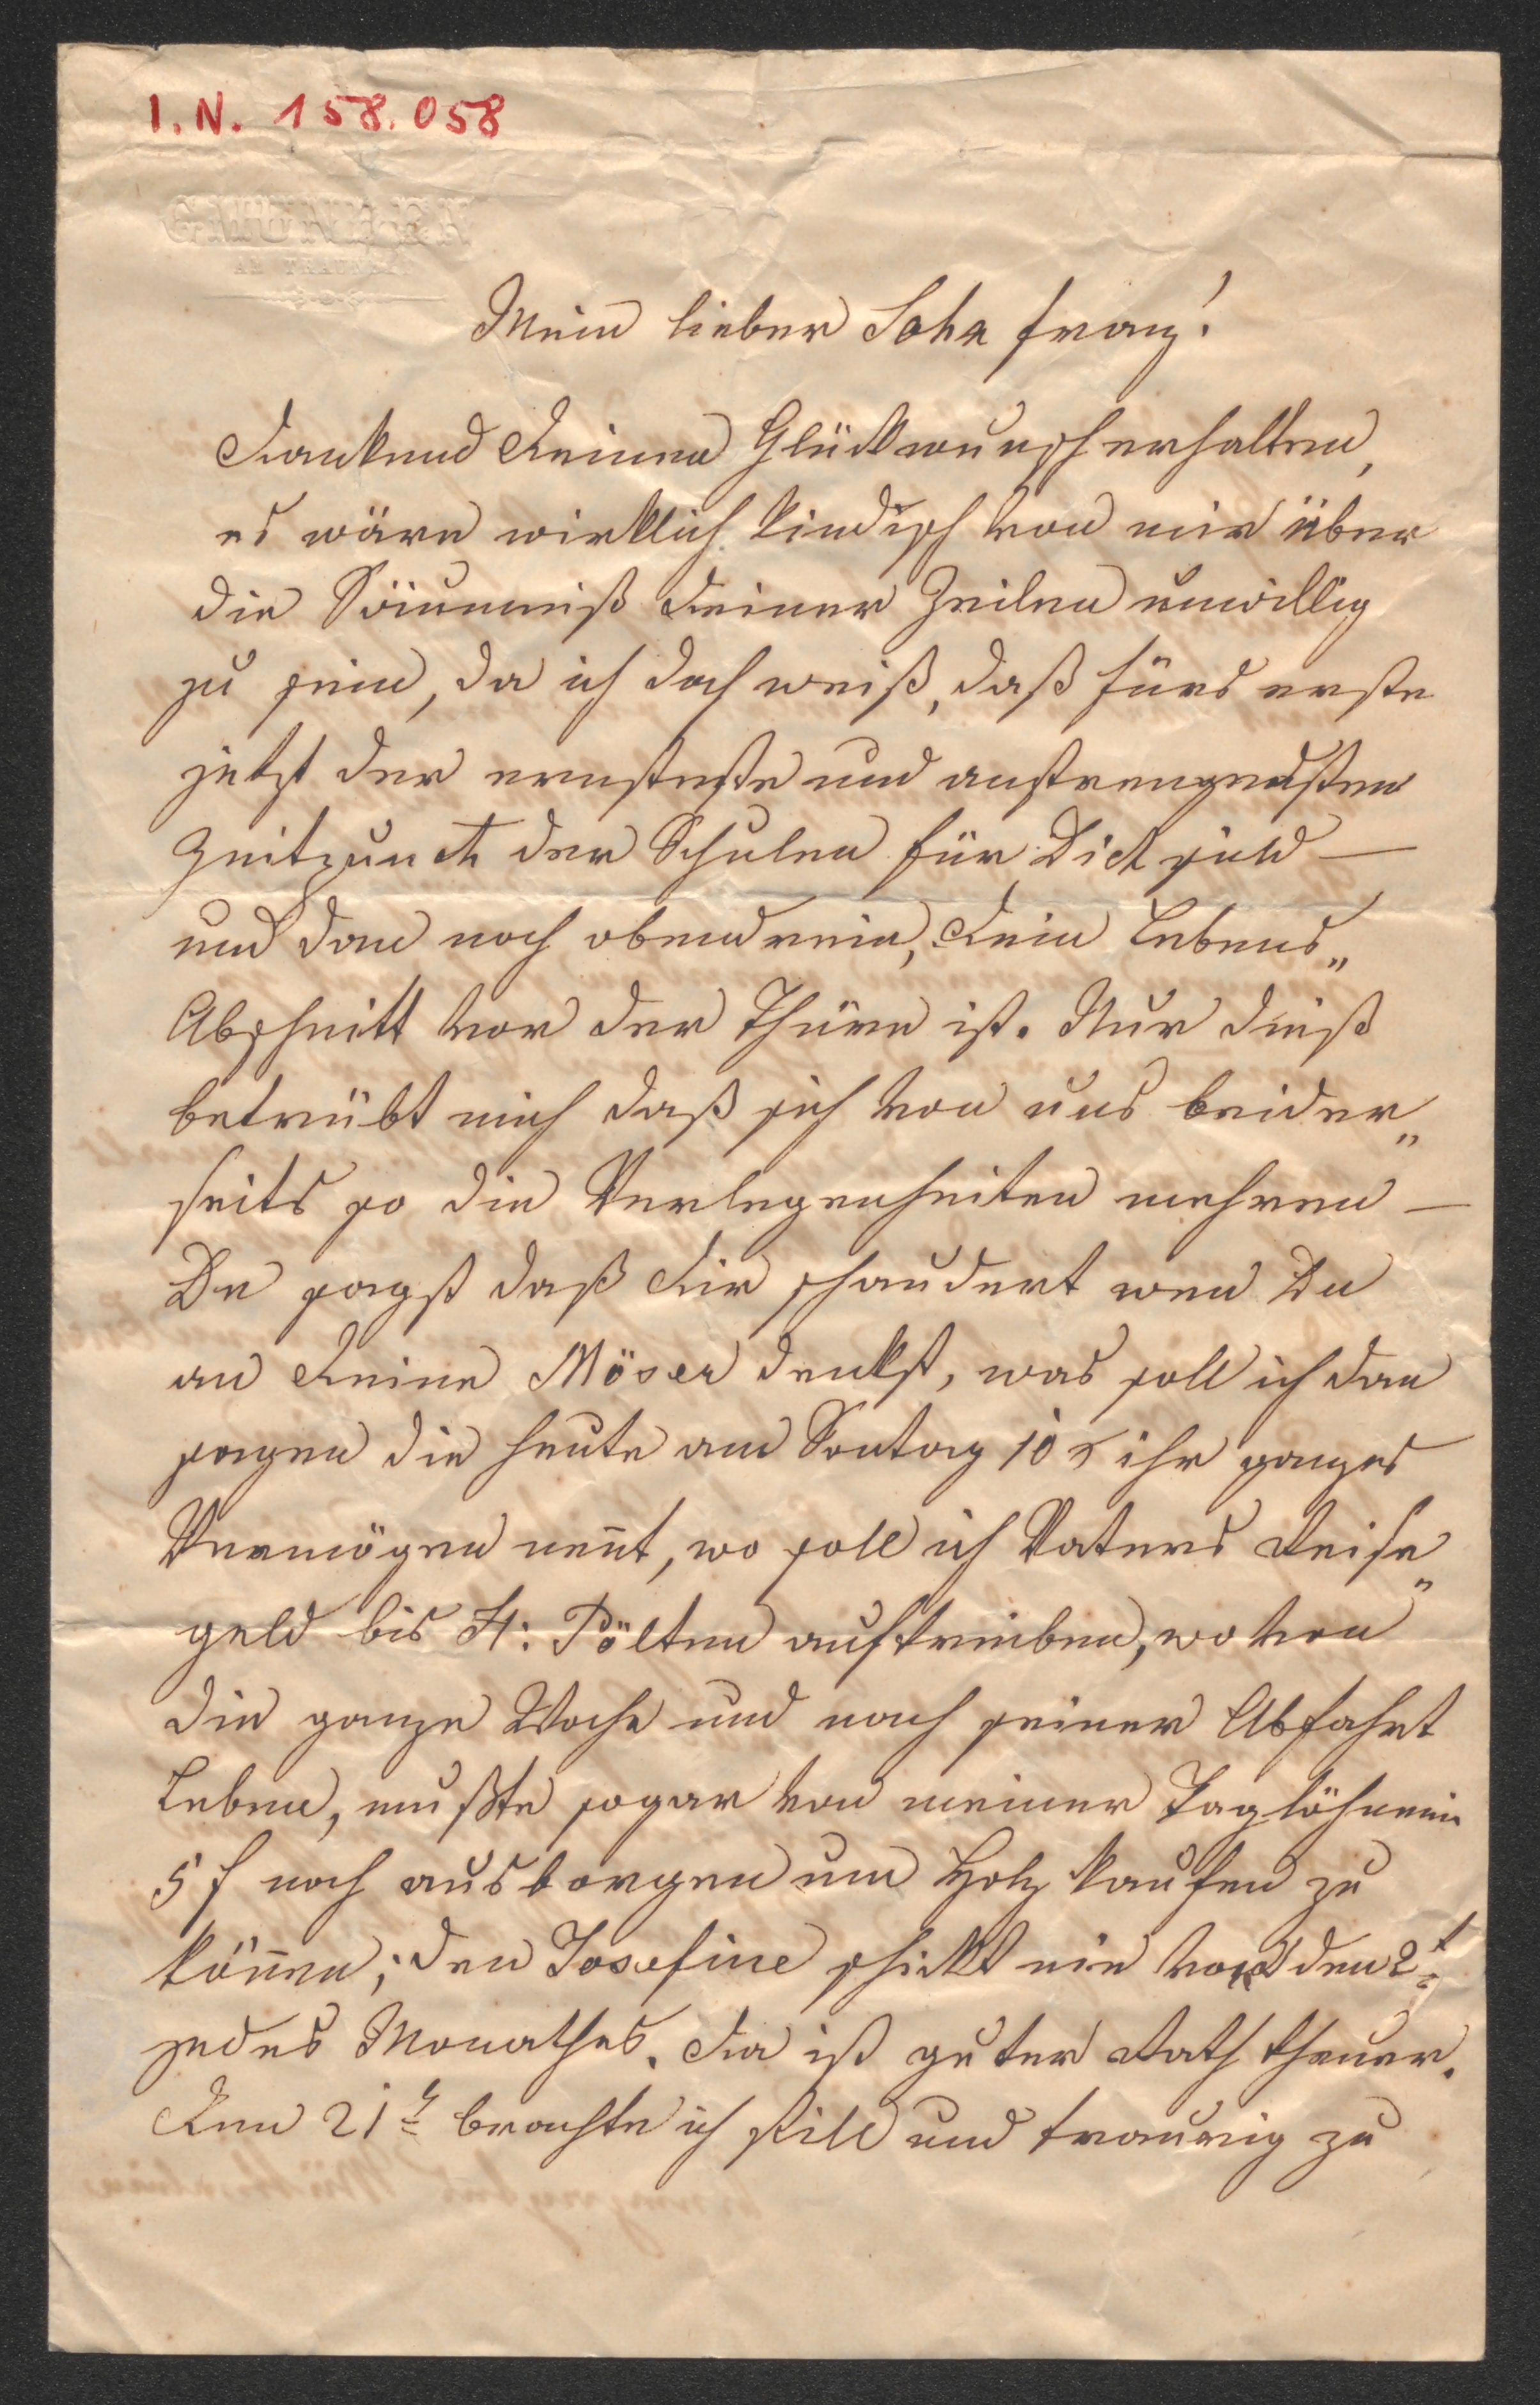 I.N. 158.058
GMUNDEN
AM TRAUNSEE
Mein lieber Sohn Franz!
Dankend Deinen Glückwunsch erhalten,
es wäre wirklich kindisch von mir über
die Säumniß Deiner Zeilen unwillig
zu sein, da ich doch weiß, daß fürs erste
jetzt der ernsteste und anstrengendsten
Zeitpunckt der Schulen für Dich sind —
und dan noch obendrein, Dein Lebens„
Abschnitt vor der Thüre ist. Nur dieß
betrübt mich daß sich von uns beider„
seits so die Verlegenheiten mehren —
Du sagst daß Dir schaudert wen Du
an Deine Möser denkst, was soll ich dan
sagen die heute am Sontag 10 x ihr ganzes
Vermögen nen̄t, wo soll ich Vaters Reise„
geld bis St: Pölten auftreiben, wo von
die ganze Woche und nach seiner Abfahrt
Leben, mußte sogar von meiner Taglöhnerin
5 f noch ausborgen um Holz kaufen zu
kön̄en, den Josefine schickt nie vor den 2t
jedes Monathes. Da ist guter Rath theuer.
Den 21t brachte ich still und traurig zu